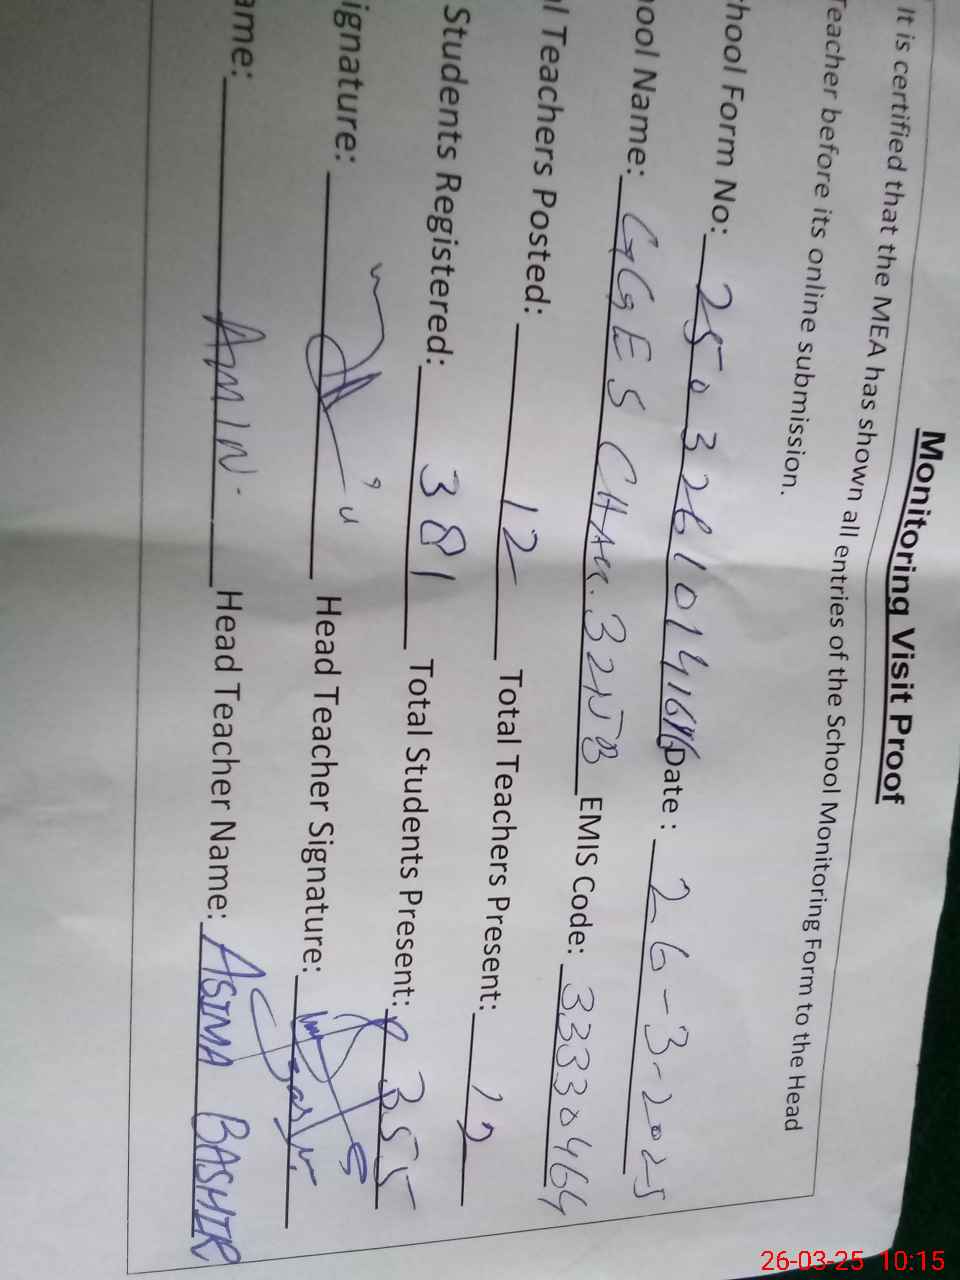 Monitoring Visit Proof
It is certified that the MEA has shown all entries of the School Monitoring Form to the Head
Teacher before its online submission.
hool Form No: 2503261014 Date : 26-3-2025
ool Name: GGES CHAK. 32 EMIS Code: 33330464
l Teachers Posted: 12 Total Teachers Present: 12
Students Registered: 381 Total Students Present: 355
ignature: Head Teacher Signature:
ame: AMIN. Head Teacher Name: ASIMA BASHIR
26-03-25 10:15